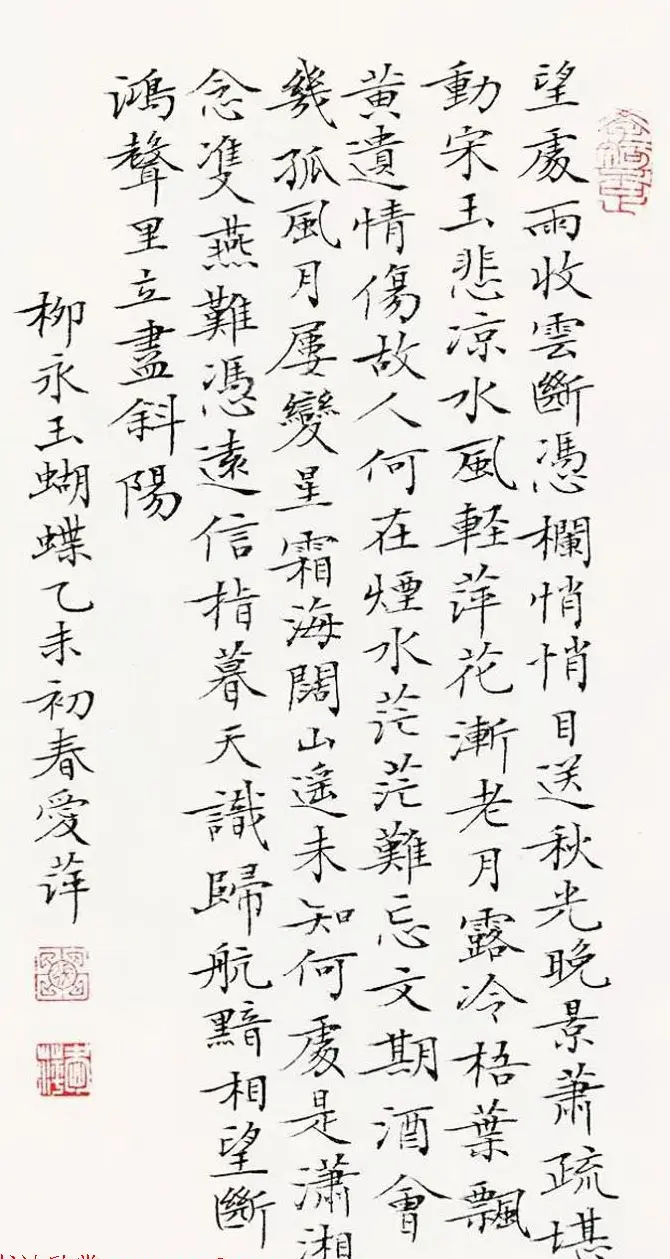 望處雨收雲斷憑欄悄悄目送秋光晚景蕭疏堪
動宋玉悲凉水風軽萍花漸老月露冷梧葉飄
黃遣情傷故人何在煙水茫茫難忘文期酒會
幾孤風月屢變星霜海闊山遥未知何處是瀟湘
念雙燕難憑遠信指暮天識歸航黯相望斷
鴻聲里立盡斜陽
柳永玉蝴蝶乙未初春愛萍